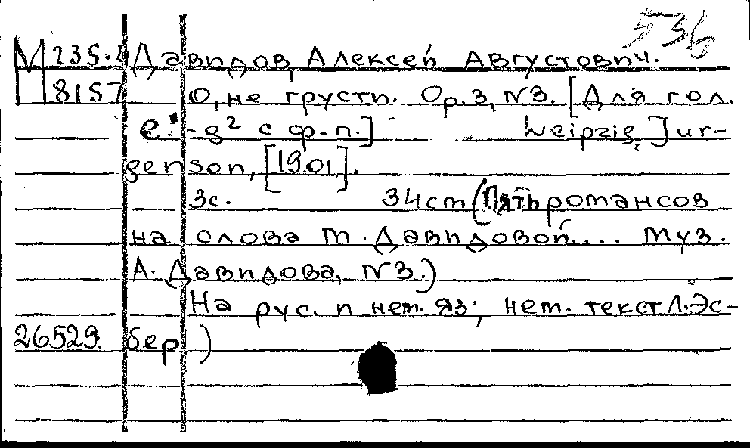 536
М 235.1 Давидов, Алексей Августович.
8157 О, не грусти. Op.3, N3. [Для гол.
e'-g² с ф-п.] Leipzig, Jur-
genson, [1901].
3с. 34см (Пять романсов
на слова т. Давидовой.... муз.
А. Давидова, N3.)
На рус. и нем. яз; нем. текст Л. Эс-
26529. бер)